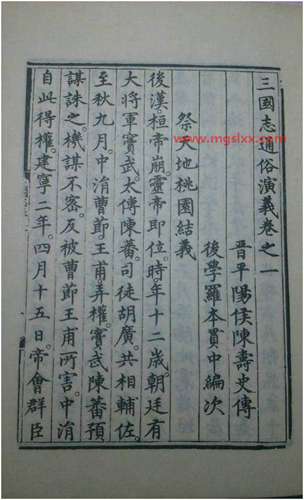 三國志通俗演義卷之一
晉平陽侯陳壽史傳
後學羅本貫中編次
祭天地桃園結義
後漢桓帝崩靈帝即位時年十二歲朝廷有
大將軍竇武太傅陳蕃司徒胡廣共相輔佐
至秋九月中涓曹節王甫弄權竇武陳蕃預
謀誅之機謀不密反被曹節王甫所害中涓
自此得權建寧二年四月十五日帝會群臣
www.mgslxx.com